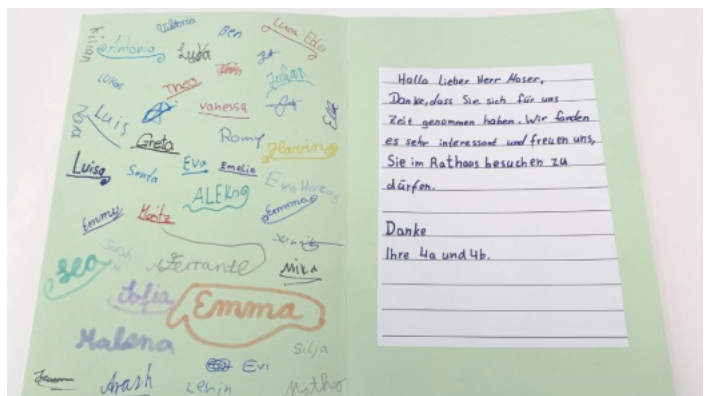 Kilian
Viktoria
Ben
Luca Ede
Antonia
Lyda
Lukas
Theo
Julian
Zara
Luis
vanessa
Elle
Greta
Romy
Luisa
Senta
Eva
Emelie
Eva Herzog
ALEKS
Emmy
Moritz
Emmma
Sarah
Leo
Ferrante
Mika
Sofia
Emma
Malena
Silja
Evi
Arash
Levin
Matheo
Hallo Lieber Herr Moser,
Danke, dass Sie sich für uns
Zeit genommen haben. Wir fanden
es sehr interessant und freuen uns,
Sie im Rathaus besuchen zu
dürfen.
Danke
Ihre 4a und 4b.